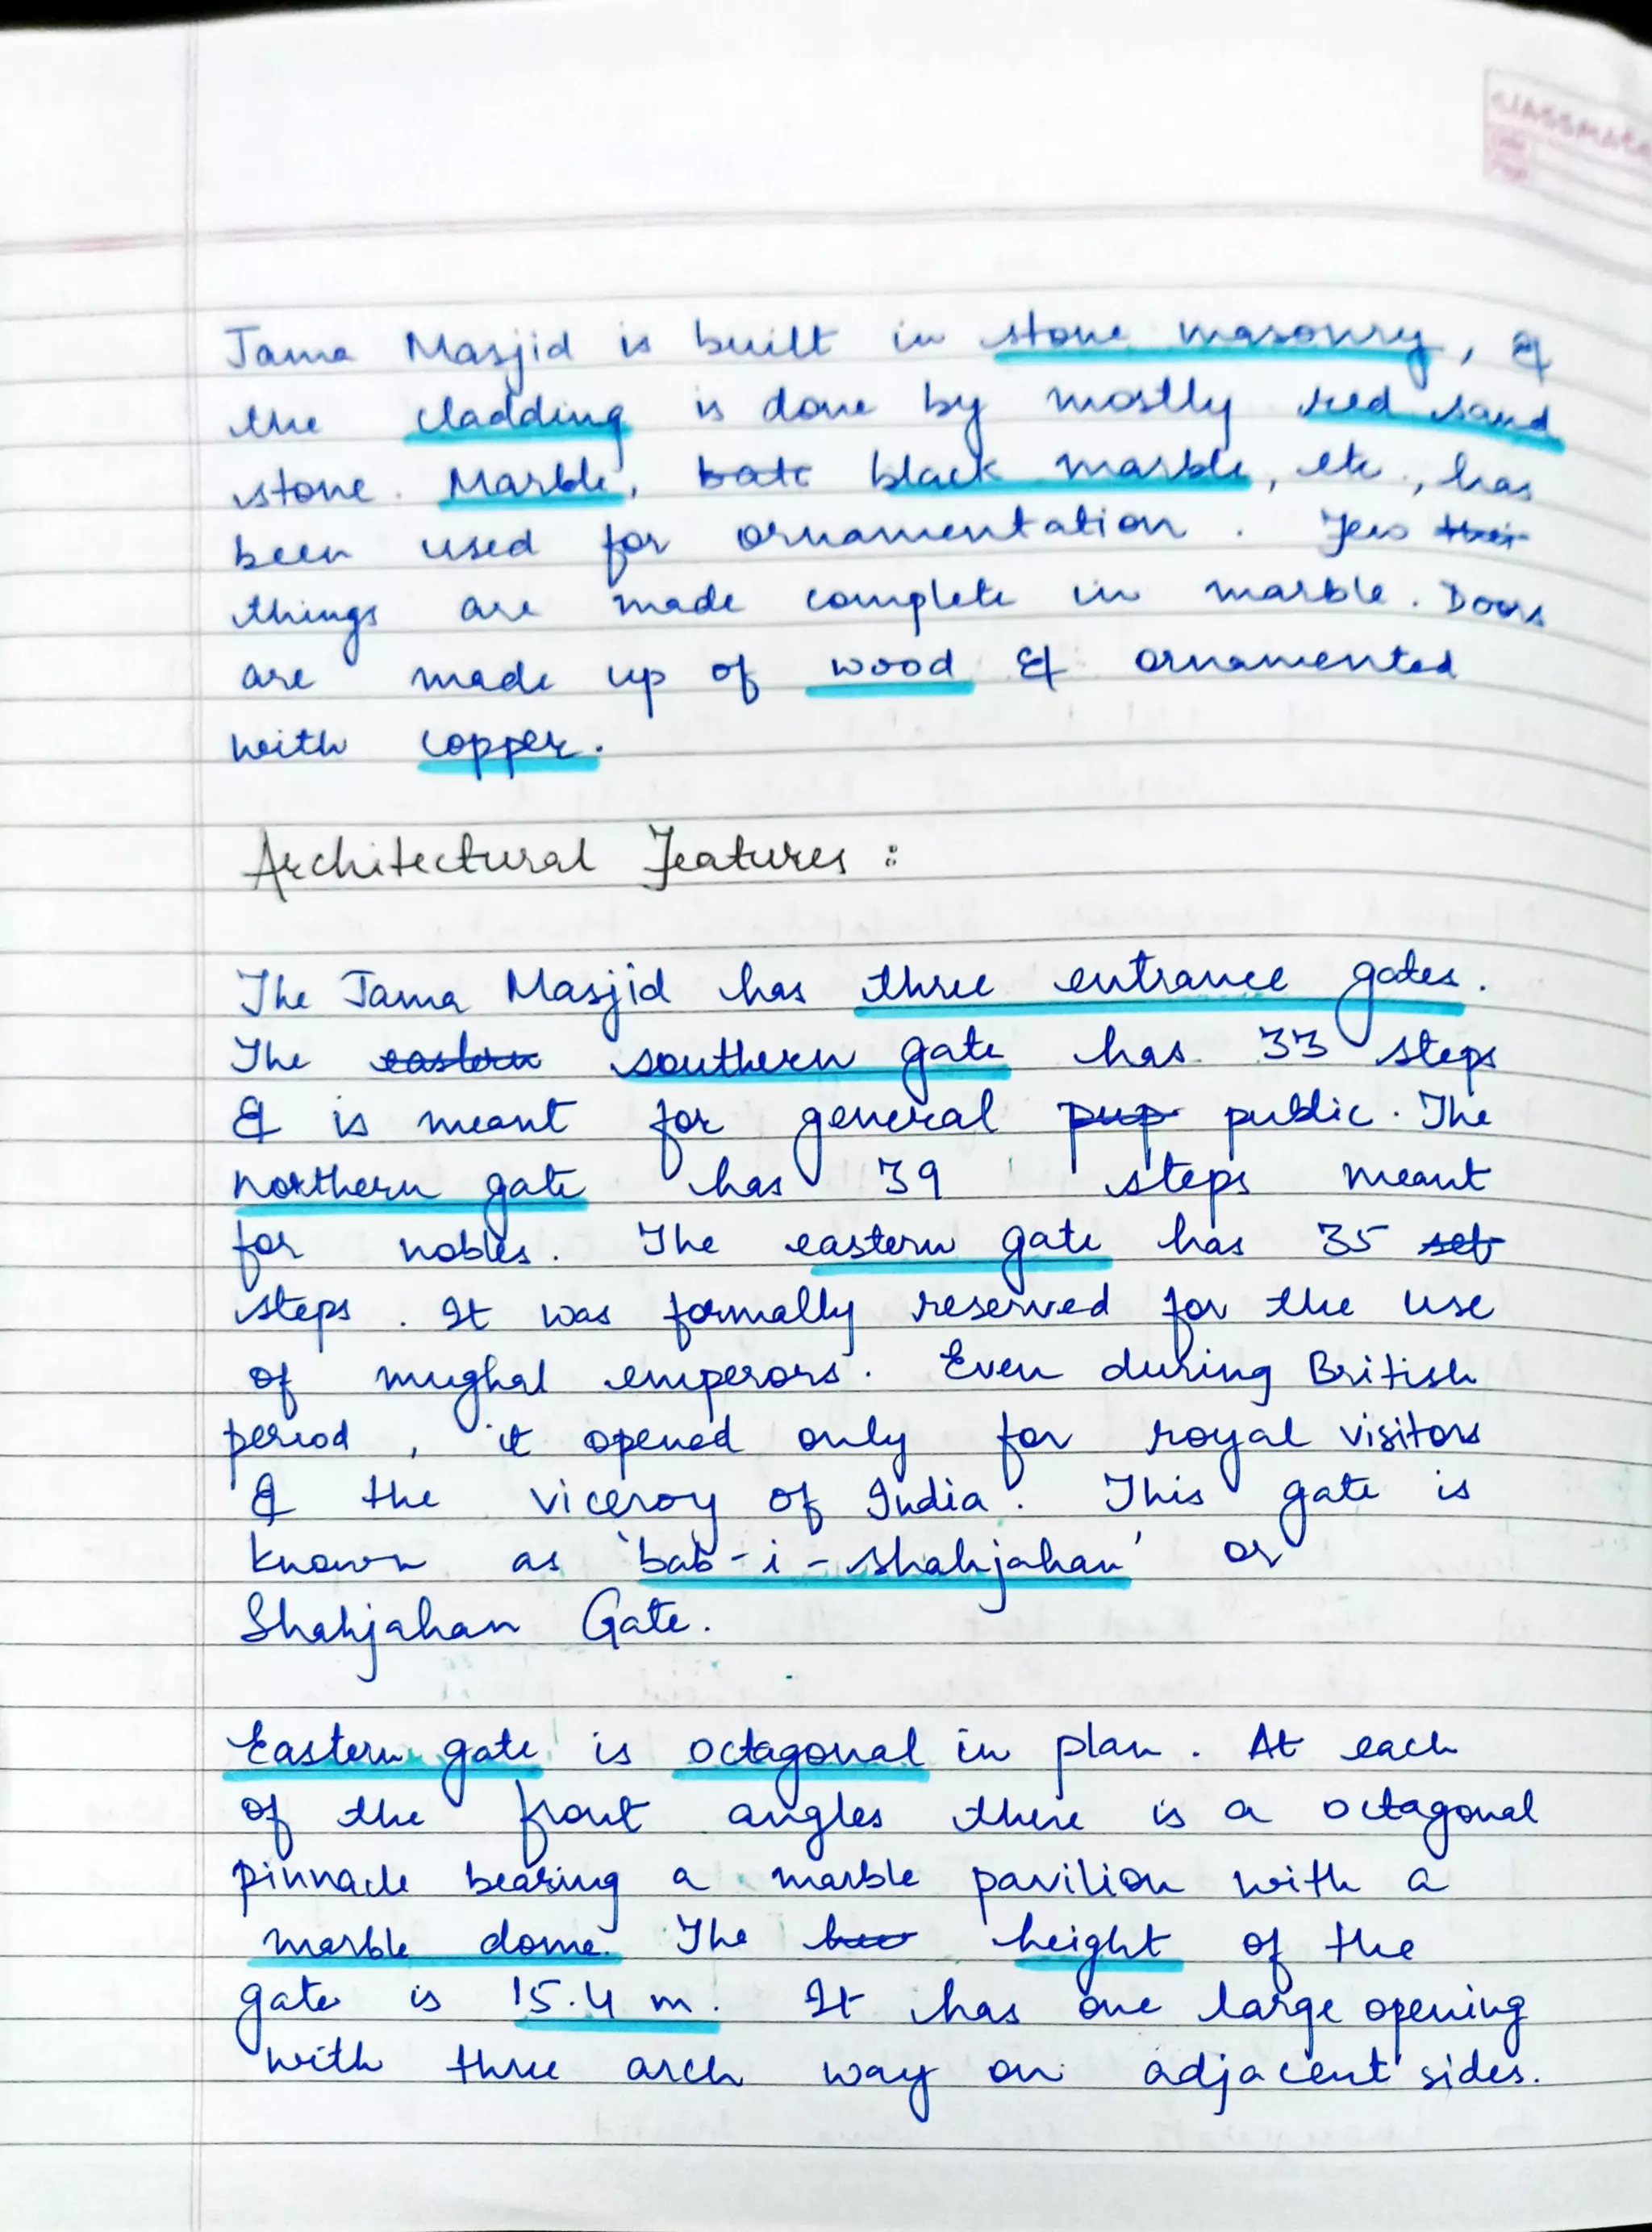 classmate
Date
Page
Jama Masjid is built in stone masonry, &
the cladding is done by mostly red sand
stone. Marble, batc black marble, etc., has
been used for ornamentation. Few their
things are made complete in marble. Doors
are made up of wood & ornamented
with copper.
Architectural Features :
The Jama Masjid has three entrance gates.
The eastern southern gate has 33 steps
& is meant for general pup public. The
northern gate has 39 steps meant
for nobles. The eastern gate has 35 set
steps. It was formally reserved for the use
of mughal emperors. Even during British
period, it opened only for royal visitors
& the viceroy of India. This gate is
known as 'bab-i-shahjahan' or
Shahjahan Gate.
Eastern gate is octagonal in plan. At each
of the front angles there is a octagonal
pinnacle bearing a marble pavilion with a
marble dome. The height of the
gate is 15.4 m. It has one large opening
with three arch way on adjacent sides.